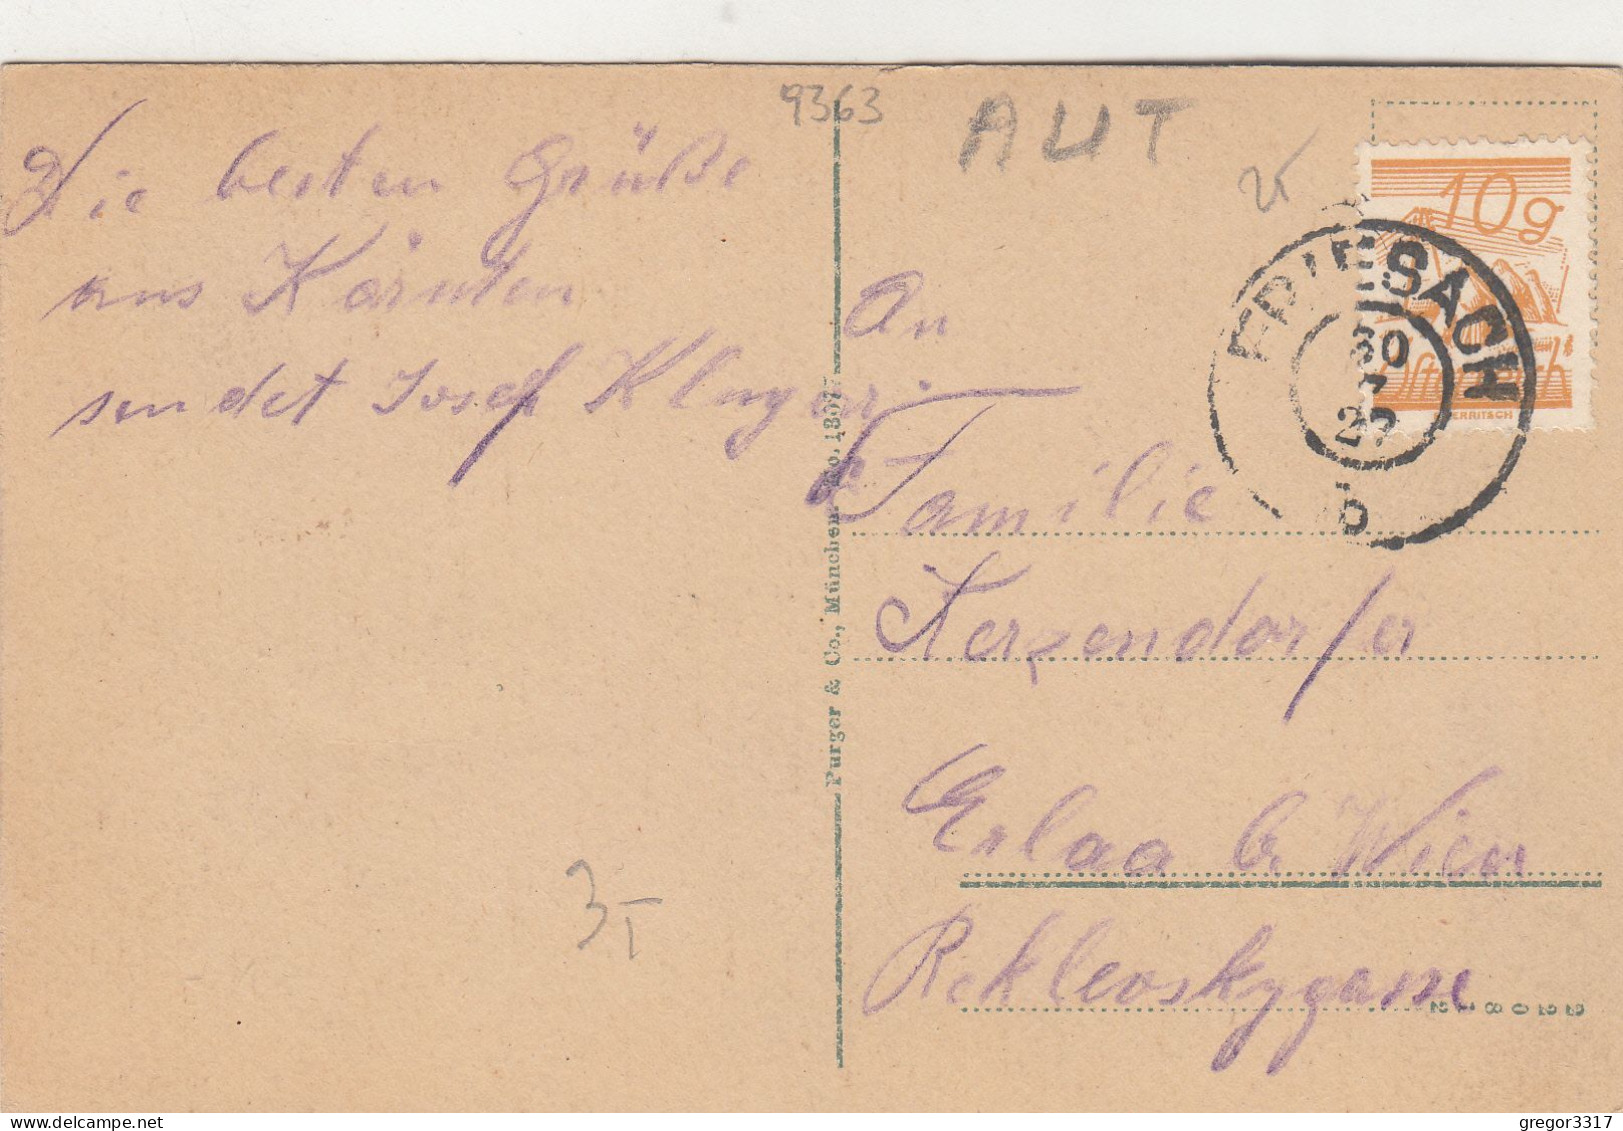 9363
AUT
Die besten Grüße
aus Kärnten
sendet Josef Kluger.
10g
FRIESACH
30
7
27
b
Österreich
An
Familie
Kerzendorfer
Erlaa b. Wien
Reklewskygasse
Purger & Co., München. No. 1307
3,-
22108.12
gregor3317